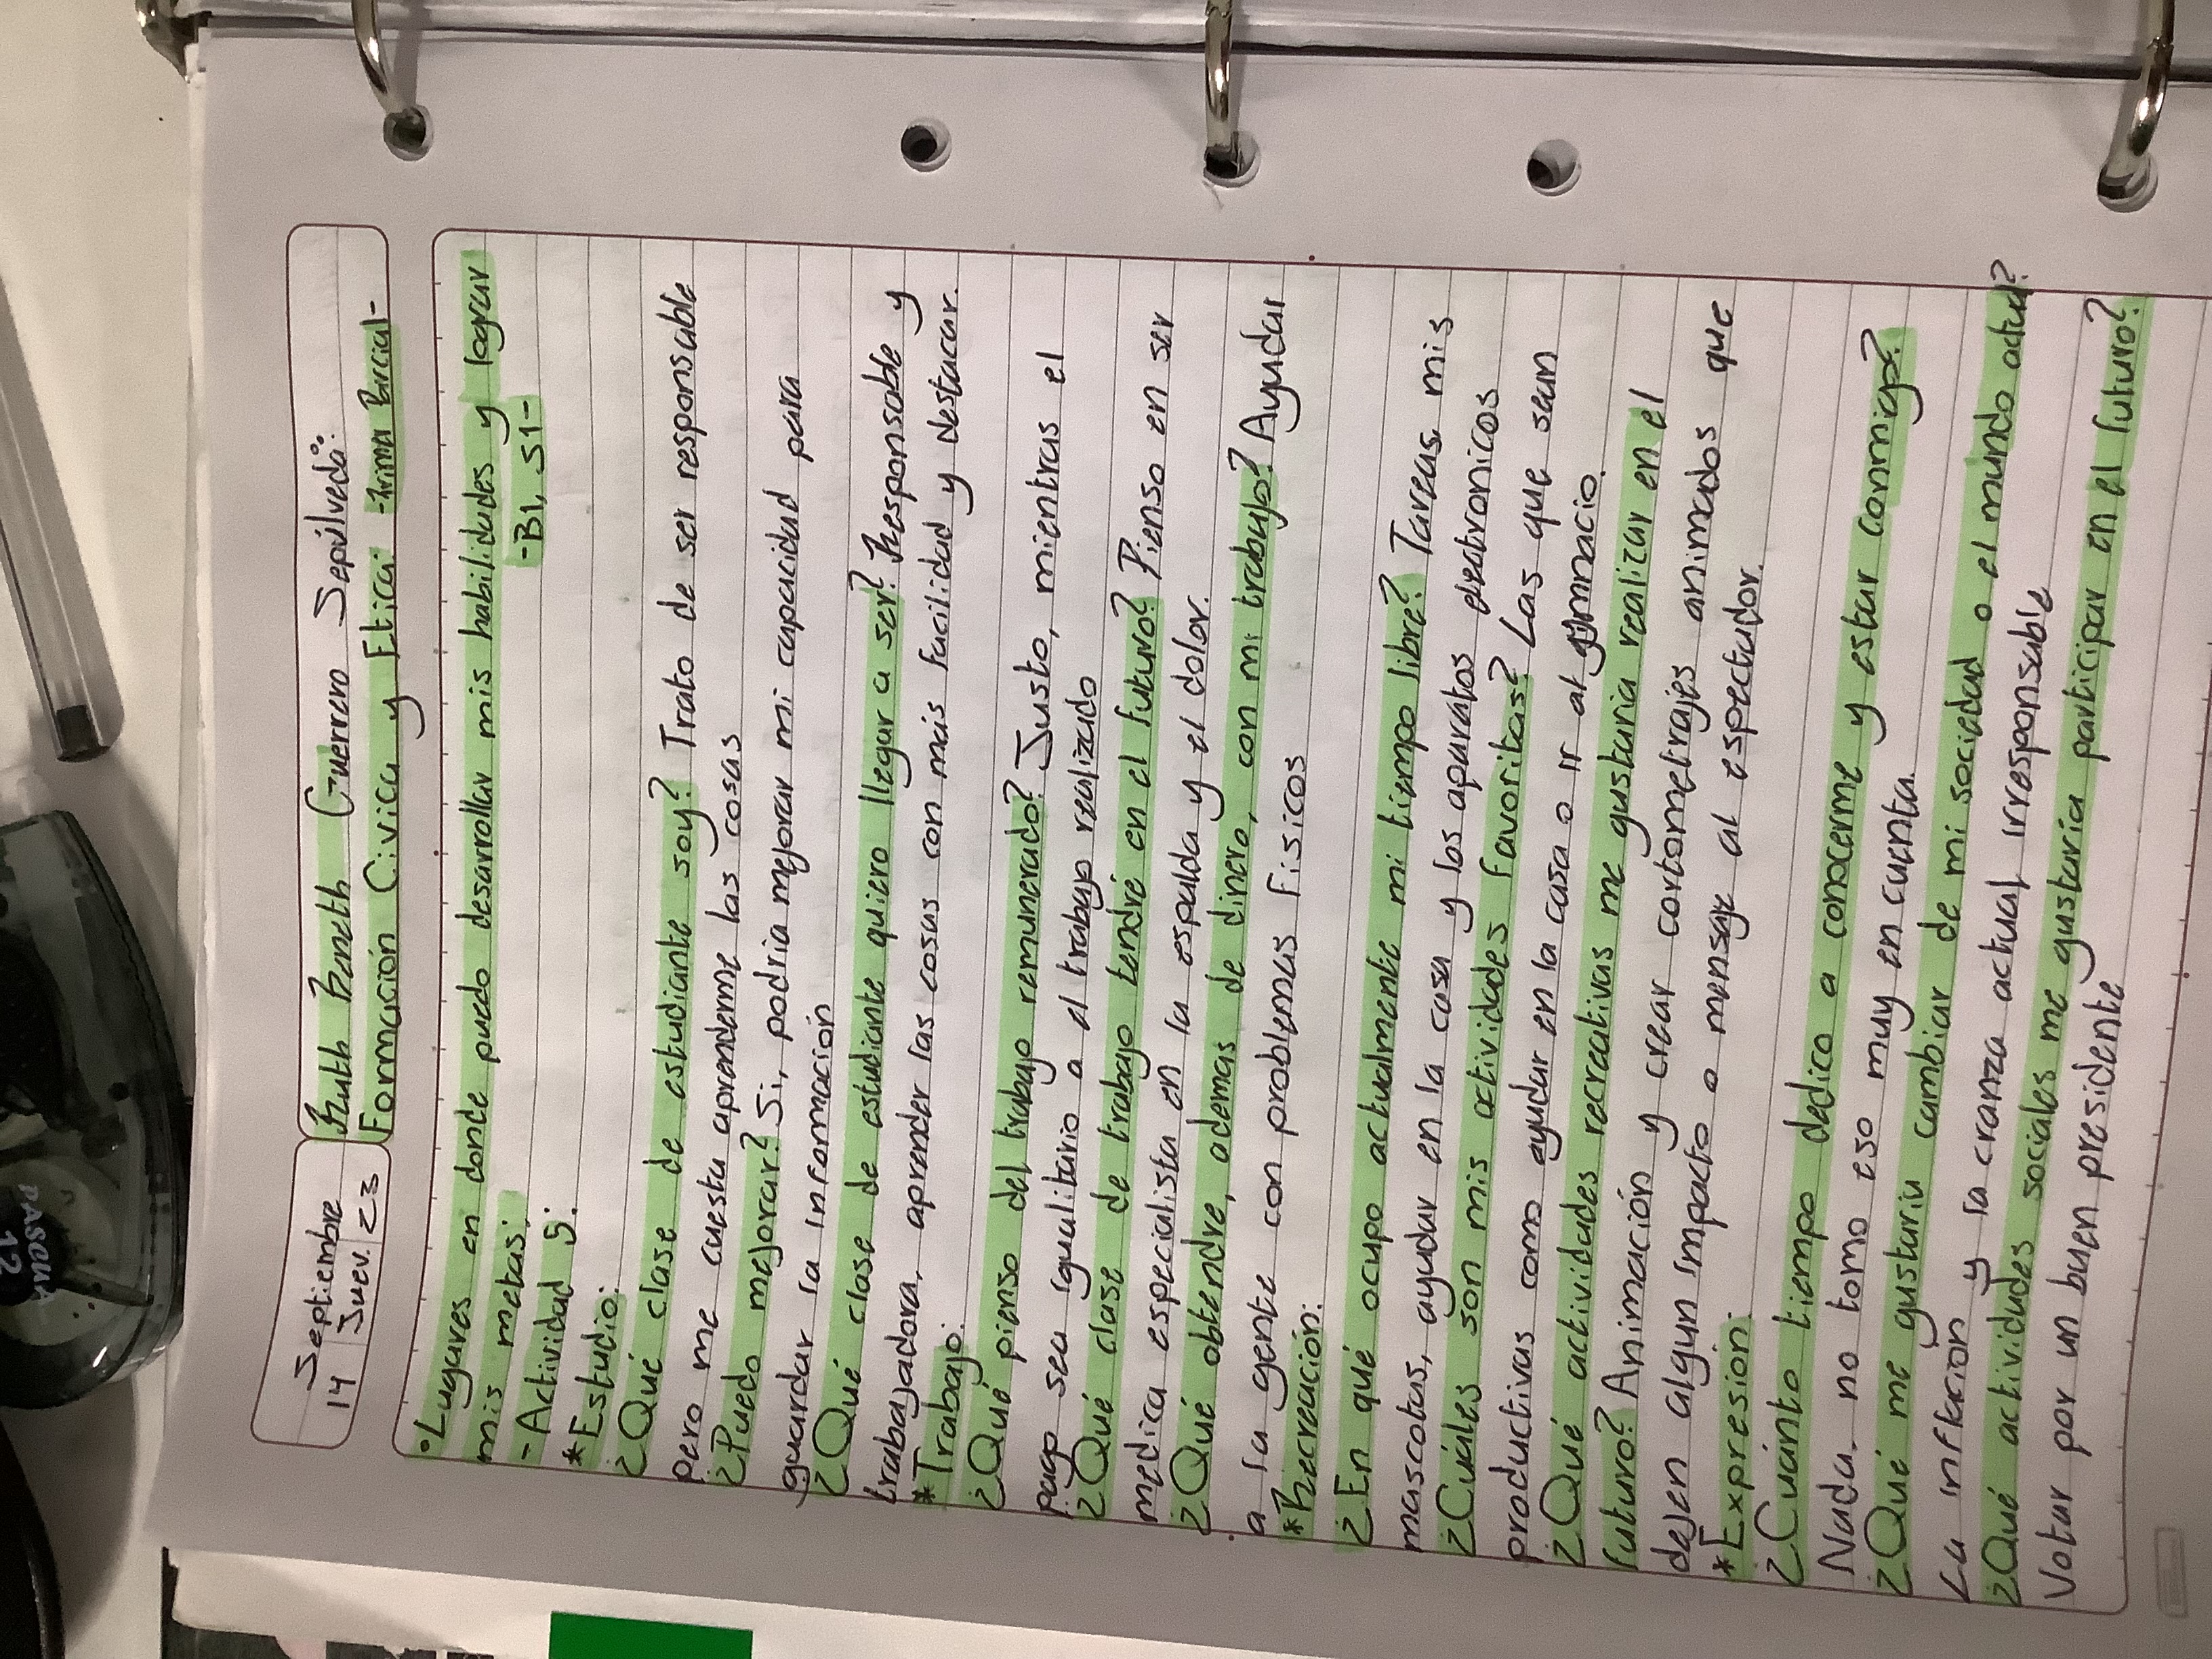 Septiembre
14 Juev. 23
Ruth Guerrero Sepúlveda:
Formación Civica y Etica -Primer Parcial-
•Lugares en donde puedo desarrollar mis habilidades y lograr
mis metas: -B1, S1-
-Actividad 5:
*Estudio:
¿Qué clase de estudiante soy? Trato de ser responsable
pero me cuesta aprenderme las cosas
¿Puedo mejorar? Si, podria mejorar mi capacidad para
guardar la informacion
¿Qué clase de estudiante quiero llegar a ser? Responsable y
trabajadora, aprender las cosas con más facilidad y destacar.
*Trabajo:
¿Qué pienso del trabajo remunerado? Justo, mientras el
pago sea igualitario a al trabajo realizado
¿Qué clase de trabajo tendré en el futuro? Pienso en ser
medica especialista en la espalda y el dolor.
¿Qué obtendre, ademas de dinero, con mi trabajo? Ayudar
a la gente con problemas fisicos
*Recreación:
¿En qué ocupo actualmente mi tiempo libre? Tareas, mis
mascotas, ayudar en la casa y los aparatos electronicos
¿Cuáles son mis actividades favoritas? Las que sean
productivas como ayudar en la casa o ir al gymnacio.
¿Qué actividades recreativas me gustaria realizar en el
futuro? Animación y crear cortometrajes animados que
dejen algun impacto o mensaje al espectador.
*Expresión:
¿Cuánto tiempo dedico a conocerme y estar conmigo?
Nada, no tomo eso muy en cuenta.
¿Qué me gustaria cambiar de mi sociedad o el mundo actual?
La inflacion y la cranza actual irresponsable
¿Qué actividades sociales me gustaría participar en el futuro?
Votar por un buen presidente
PASCUA
12